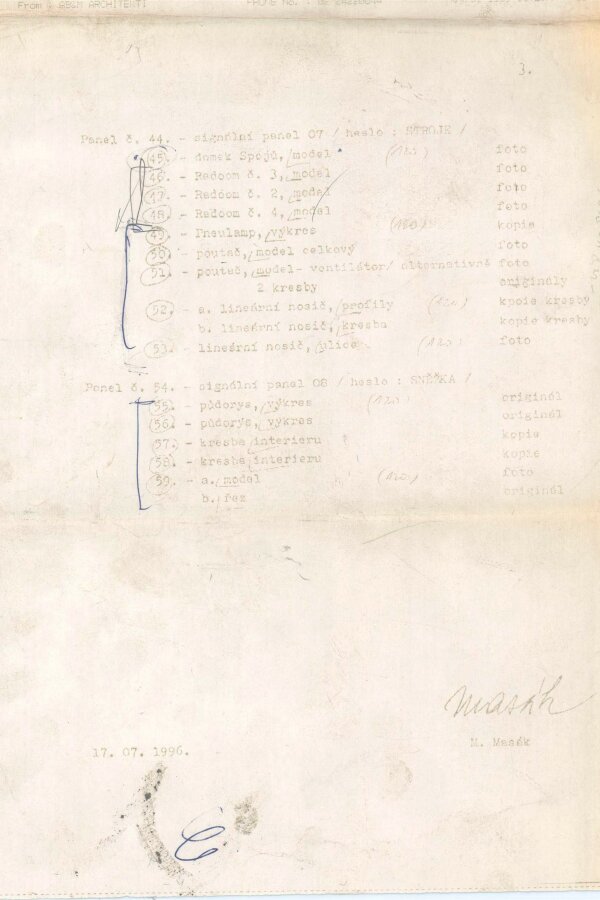 From : AB&M ARCHITEKTI
3.
Panel č. 44. - signální panel 07 / heslo : STROJE /
45. - domek Spojů, model (120) foto
46. - Radoom č. 3, model foto
47. - Radoom č. 2, model foto
48. - Radoom č. 4, model foto
49. - Pneulamp, výkres (180) kopie
50. - poutač, model celkový foto
51. - poutač, model- ventilátor/ alternativně foto
2 kresby originály
52. - a. lineární nosič, profily (120) kpoie kresby
b. lineární nosič, kresba kopie kresby
53. - lineární nosič, ulice (120) foto
Panel č. 54. - signální panel 08 / heslo : SNĚŽKA /
55. - půdorys, výkres (120) originál
56. - půdorys, výkres originál
57. - kresba interieru kopie
58. - kresba interieru kopie
59. - a. model (120) foto
b. řez originál
Masák
M. Masák
17. 07. 1996.